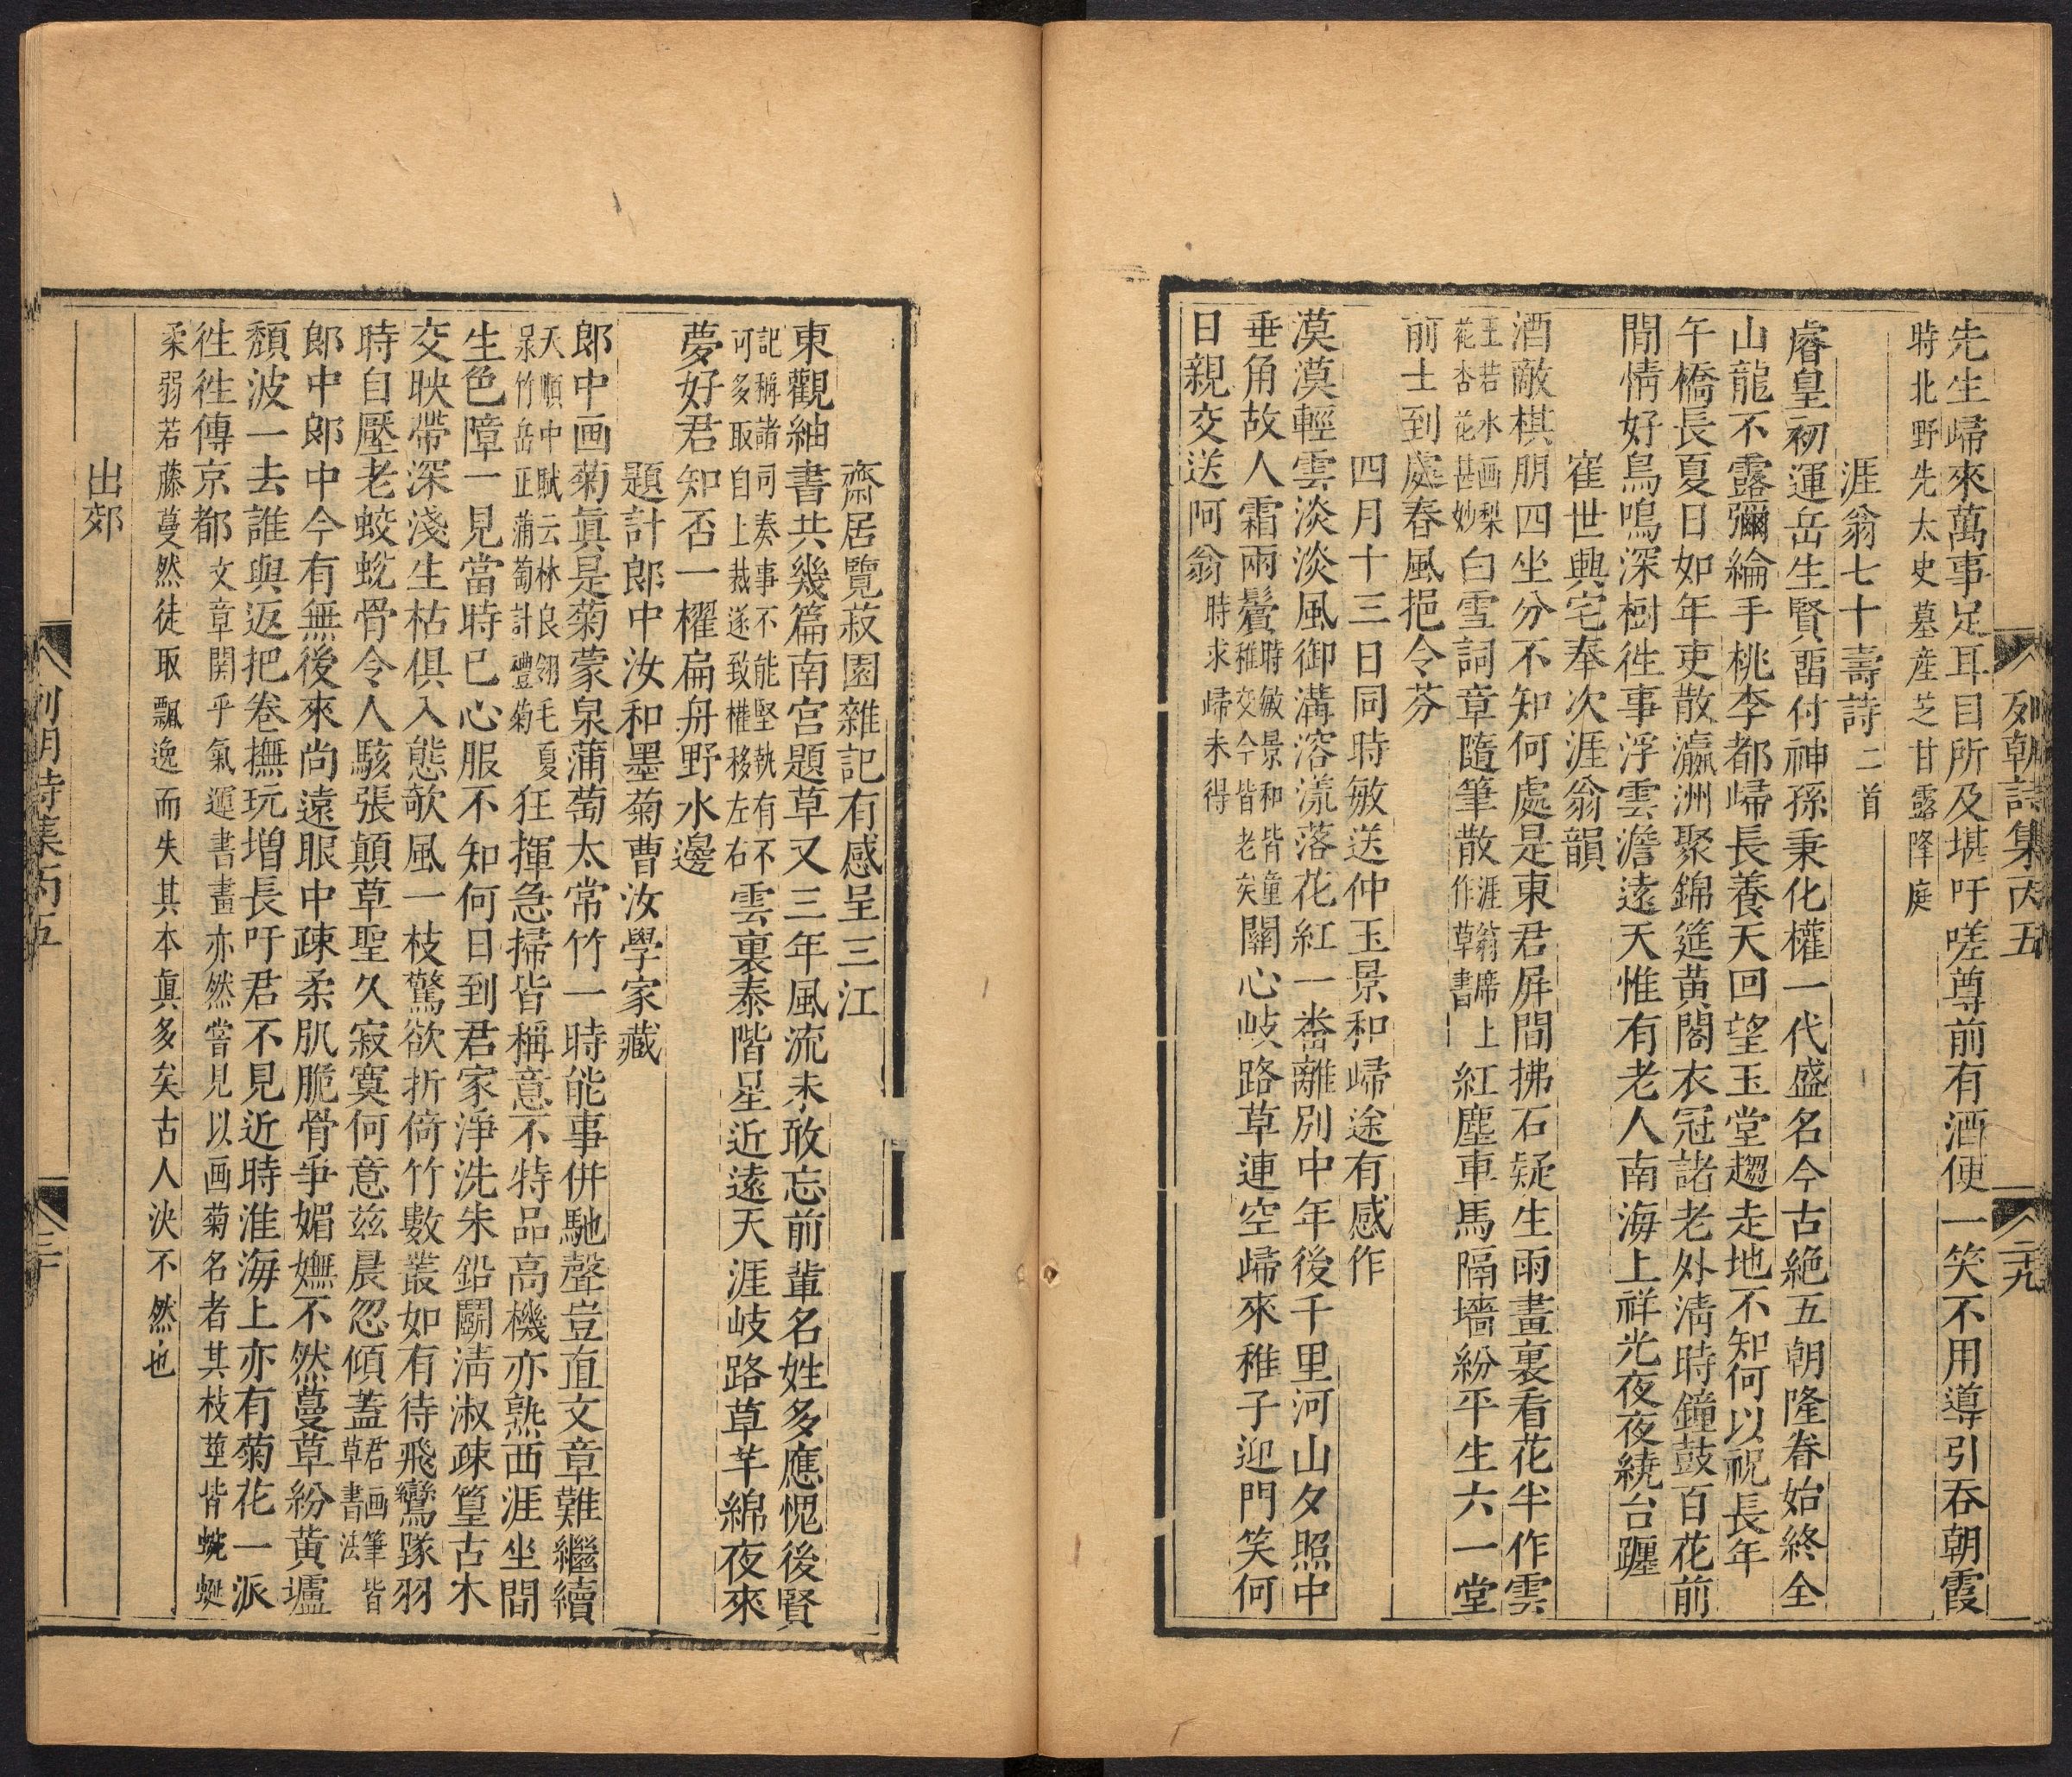 列朝詩集丙五
二十九
先生歸來萬事足耳目所及堪吁嗟尊前有酒便一笑不用導引吞朝霞
時北野先太史墓産芝甘露降庭
涯翁七十壽詩二首
睿皇初運岳生賢畱付神孫秉化權一代盛名今古絶五朝隆眷始終全
山龍不露彌綸手桃李都歸長養天回望玉堂趨走地不知何以祝長年
午橋長夏日如年吏散瀛洲聚錦筵黄閣衣冠諸老外淸時鐘鼓百花前
閒情好鳥鳴深樹徃事浮雲澹遠天惟有老人南海上祥光夜夜繞台躔
崔世興宅奉次涯翁韻
酒敵棋朋四坐分不知何處是東君屛間拂石疑生雨畫裏看花半作雲
王若水画梨花杏花甚妙白雪詞章隨筆散涯翁席上作草書紅塵車馬隔墻紛平生六一堂
前士到處春風挹令芬
四月十三日同時敏送仲玉景和歸途有感作
漠漠輕雲淡淡風御溝溶漾落花紅一樽離別中年後千里河山夕照中
垂角故人霜兩鬢時敏景和皆童稚交今皆老矣關心岐路草連空歸來稚子迎門笑何
日親交送阿翁時求歸未得
齋居覽菽園雜記有感呈三江
東觀紬書共幾篇南宫題草又三年風流未敢忘前輩名姓多應愧後賢
記稱諸司奏事不能堅執有不可多取自上裁遂致權移左右雲裏泰階星近遠天涯岐路草芊綿夜來
夢好君知否一櫂扁舟野水邊
題計郎中汝和墨菊曹汝學家藏
郎中画菊眞是菊蒙泉蒲萄太常竹一時能事併馳聲豈直文章難繼續
天順中賦云林良翎毛夏㫤竹岳正蒲萄計禮菊狂揮急掃皆稱意不特品高機亦熟西涯坐間
生色障一見當時已心服不知何日到君家淨洗朱鉛鬭淸淑疎篁古木
交映帶深淺生枯俱入態欹風一枝驚欲折倚竹數叢如有待飛鸞隊羽
時自壓老蛟蛻骨令人駭張顛草聖久寂寞何意兹晨忽傾蓋君画筆皆草書法
郎中郎中今有無後來尚遠眼中疎柔肌脆骨爭媚嫵不然蔓草紛黄壚
頽波一去誰與返把卷撫玩增長吁君不見近時淮海上亦有菊花一派
徃徃傳京都文章関乎氣運書畫亦然嘗見以画菊名者其枝莖皆蜿蜒
柔弱若藤蔓然徒取飄逸而失其本眞多矣古人決不然也
出郊
列朝詩集丙五
三十